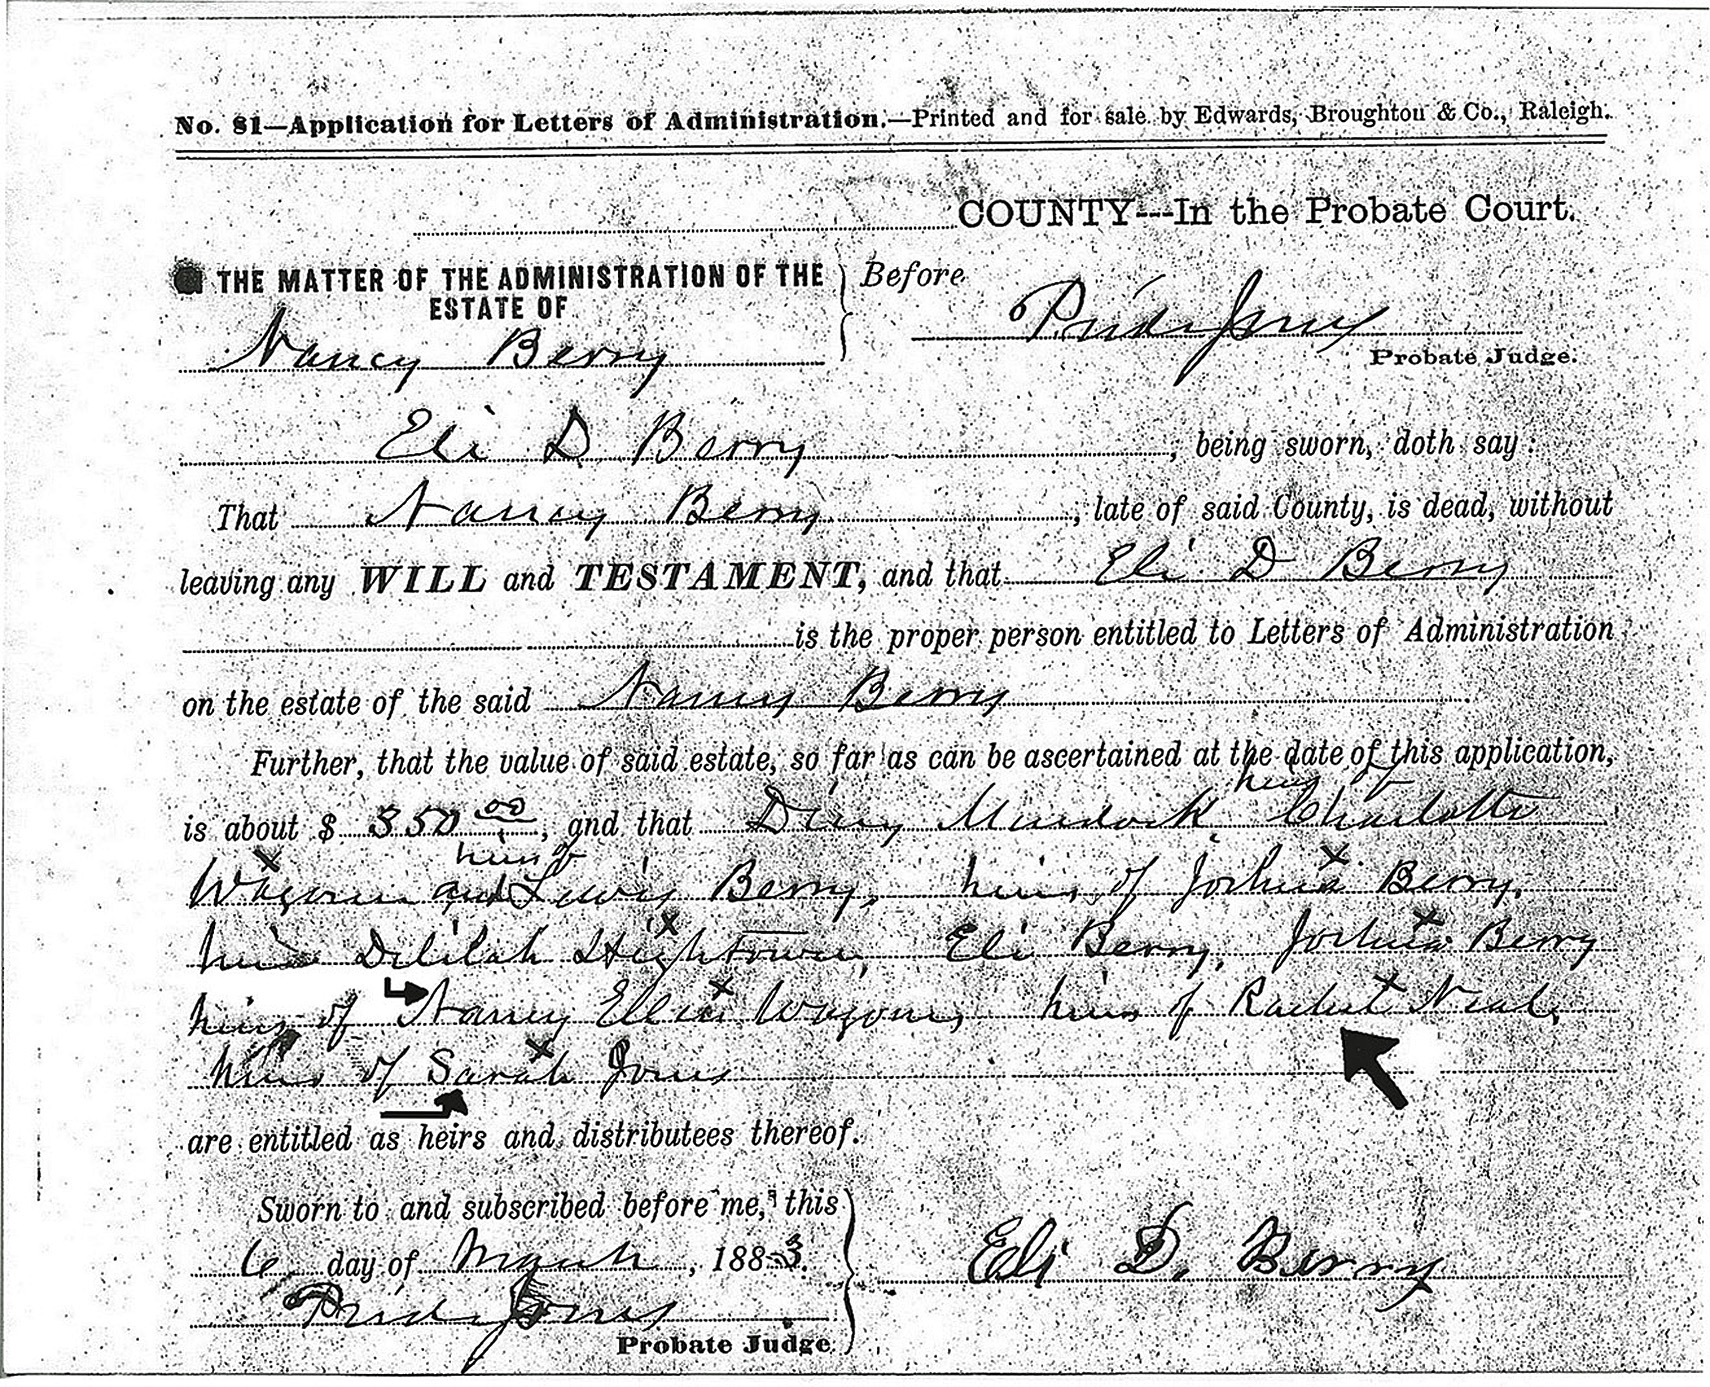 No. 81—Application for Letters of Administration.—Printed and for sale by Edwards, Broughton & Co., Raleigh.
COUNTY---In the Probate Court.
THE MATTER OF THE ADMINISTRATION OF THE
ESTATE OF
Nancy Berry
Before
Pride Jones
Probate Judge.
Eli D Berry , being sworn, doth say :
That Nancy Berry , late of said County, is dead, without
leaving any WILL and TESTAMENT, and that Eli D Berry
is the proper person entitled to Letters of Administration
on the estate of the said Nancy Berry
Further, that the value of said estate, so far as can be ascertained at the date of this application,
heirs of
is about $ 350 00 , and that Murdock Charlotte
heirs of
and Lewis Berry, heirs of Joshua Berry,
heirs Delilah Hightower, Eli Berry, Joshua Berry
heirs of Nancy Wagoner, heirs of Neal,
heirs of Sarah Jones
are entitled as heirs and distributees thereof.
Sworn to and subscribed before me, this
6 day of March , 1883.
Pride Jones
Probate Judge
Eli D. Berry